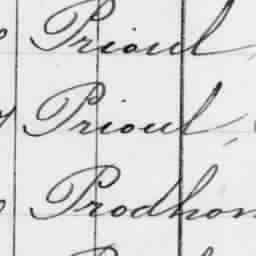 Prioul
Prioul,
Prodhom